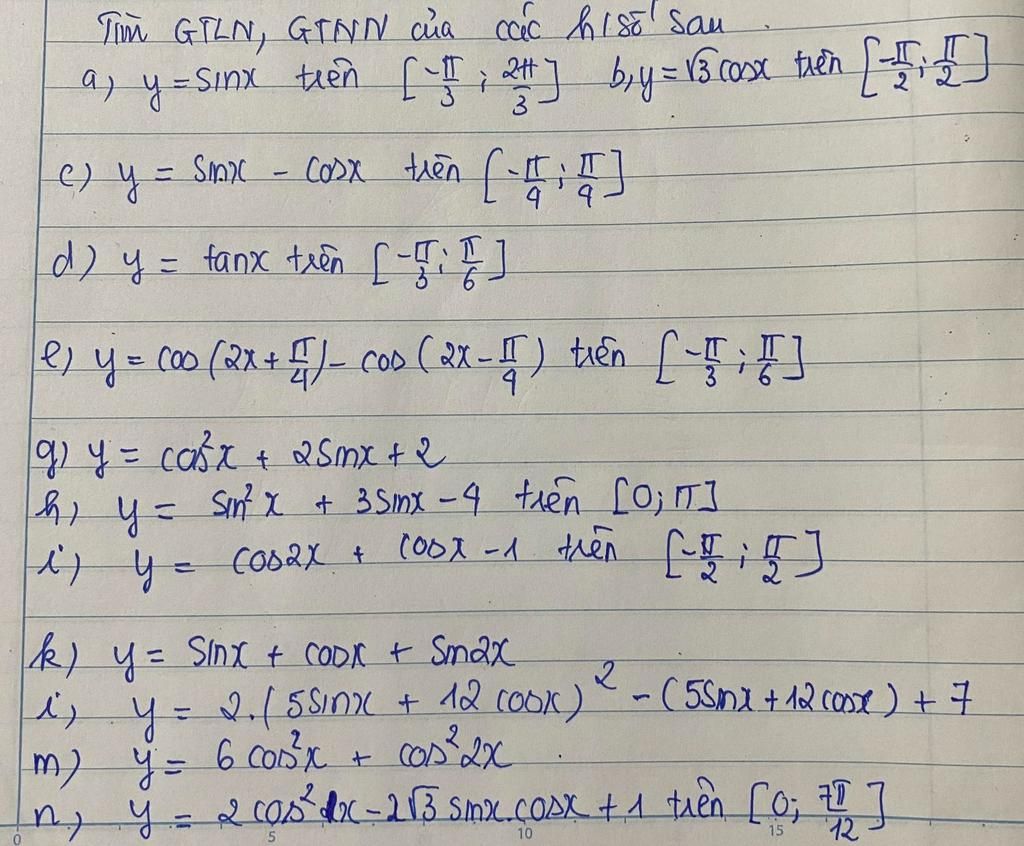 Tìm GTLN, GTNN của các h/số sau.
a, y = sinx trên [-π/3 ; 2π/3] b, y = √3 cosx trên [-π/2 ; π/2]
c) y = sinx - cosx trên [-π/4 ; π/4]
d) y = tanx trên [-π/3 ; π/6]
e) y = cos(2x + π/4) - cos(2x - π/4) trên [-π/3 ; π/6]
g) y = cos²x + 2sinx + 2
h, y = sin²x + 3sinx - 4 trên [0; π]
i) y = cos2x + cosx - 1 trên [-π/2 ; π/2]
k) y = sinx + cosx + sin2x
i, y = 2.(5sinx + 12cosx)² - (5sinx + 12cosx) + 7
m) y = 6cos²x + cos²2x
n, y = 2cos²x - 2√3 sinx.cosx + 1 trên [0; 7π/12]
0 5 10 15